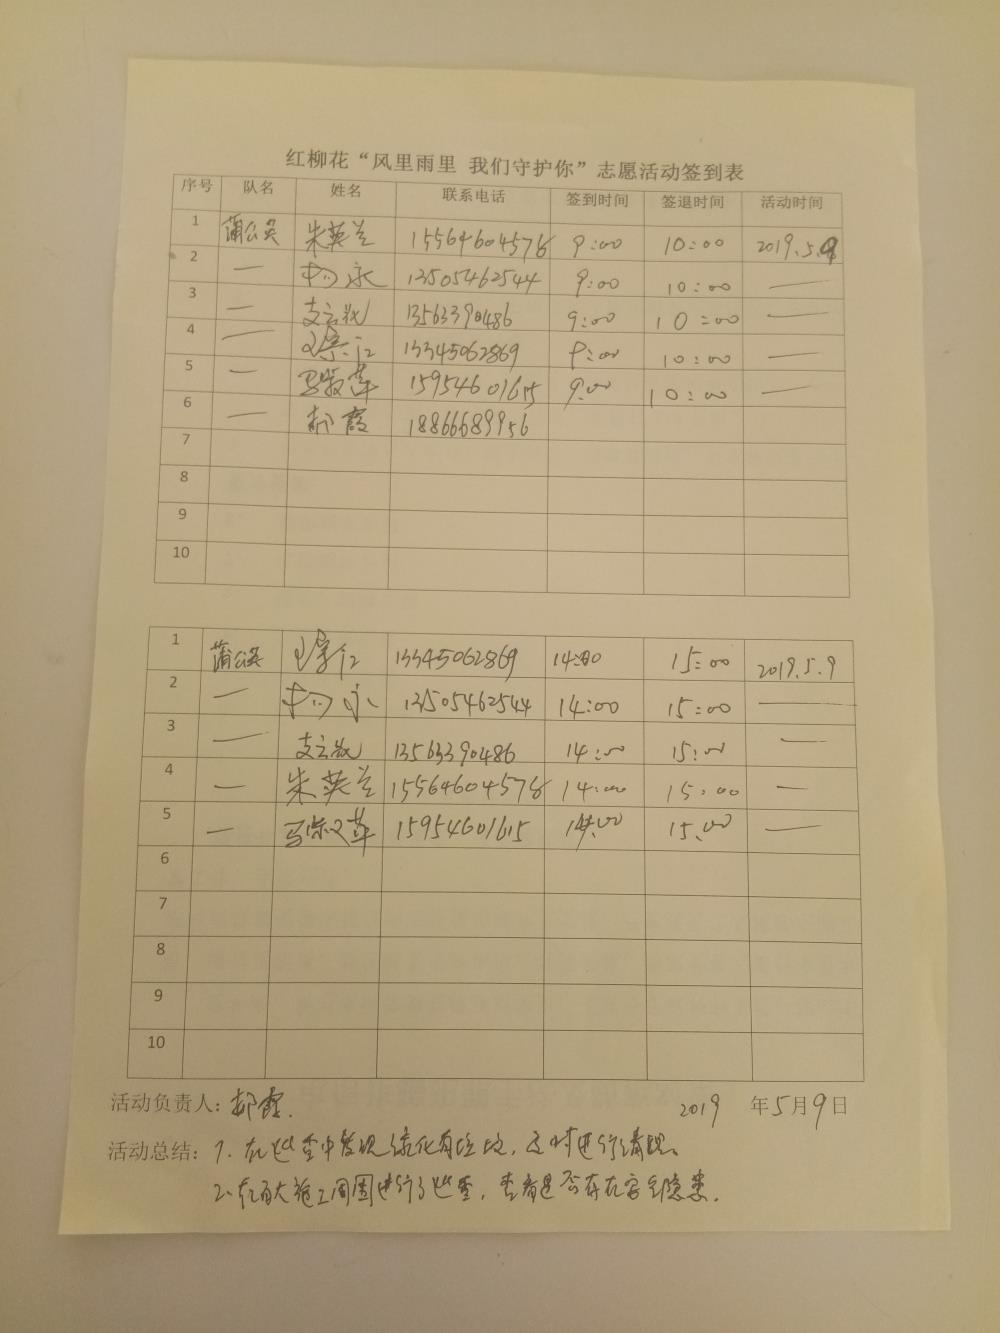 红柳花“风里雨里 我们守护你”志愿活动签到表
序号 队名 姓名 联系电话 签到时间 签退时间 活动时间
1 蒲公英 朱英兰 15564604576 9:00 10:00 2019.5.9
2 — 永 13505462544 9:00 10:00 —
3 — 支云 13563390486 9:00 10:00 —
4 — 13345062869 9:00 10:00 —
5 — 马 萍 15954601615 9:00 10:00 —
6 — 郝霞 18866689956
7
8
9
10
1 蒲公英 13345062869 14:00 15:00 2019.5.9
2 — 永 13505462544 14:00 15:00 —
3 — 支云 13563390486 14:00 15:00 —
4 — 朱英兰 15564604576 14:00 15:00 —
5 — 马 萍 15954601615 14:00 15:00 —
6
7
8
9
10
活动负责人:郝霞. 2019 年5月9日
活动总结:1. 在巡查中发现绿化有垃圾,及时进行清理。
2. 在 大施工周围进行了巡查,查看是否存在安全隐患.